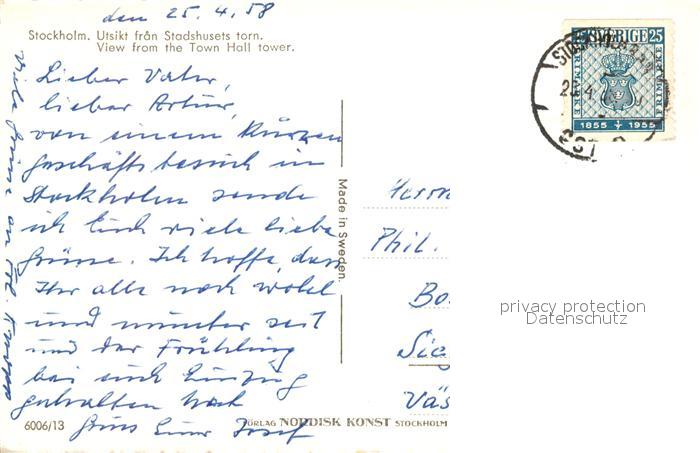 den 25.4.58
Stockholm. Utsikt från Stadshusets torn.
View from the Town Hall tower.
Lieber Vater,
lieber Artur,
von einem kurzen
geschäftsbesuch in
Stockholm sende
ich Euch viele liebe
Grüsse. Ich hoffe, dass
Ihr alle noch wohl
und munter seit
und der Frühling
bei euch Einzug
gehalten hat
Gruss Euer Josef
Viele Grüsse an
6006/13
Made in Sweden.
FÖRLAG NORDISK KONST STOCKHOLM
Herrn
Phil.
Bo
Sie
Väs
25 SVERIGE 25
FRIMÄRKE
1855 1955
privacy protection
Datenschutz